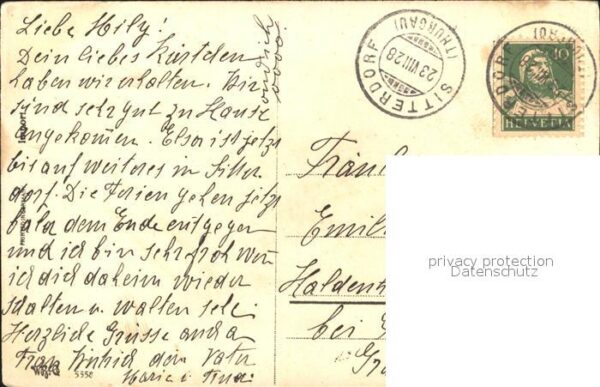 Liebe Hily!
Dein liebes Kärtchen
haben wir erhalten. Wir
sind sehr gut zu Hause
angekommen. Elsa ist jetzt
bis auf weiteres in Sitter
dorf. Die Ferien gehen jetzt
bald dem Ende entgegen
und ich bin sehr froh wenn
ich dich daheim wieder
schalten u walten sehe
Herzliche Grüsse auch a
Frau dem Vater
Marie
SITTERDORF
(THURGAU)
23.VIII.28
10
HELVETIA
ERDORF
(THURGAU)
Import
5358
Fräul
Emili
Haldenh
bei
Gr
privacy protection
Datenschutz